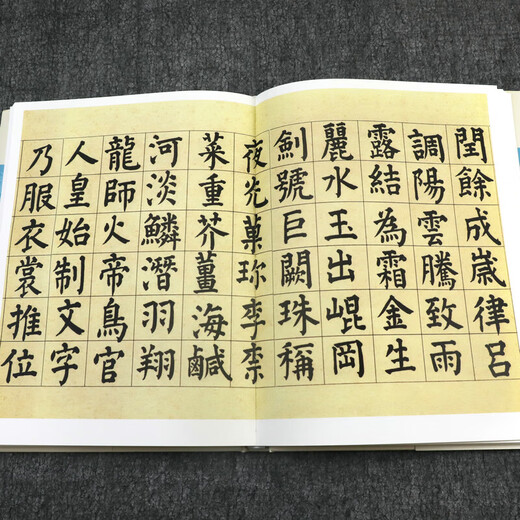 閏餘成歲律呂
調陽雲騰致雨
露結為霜金生
麗水玉出崐岡
劍號巨闕珠稱
夜光菓珎李柰
菜重芥薑海鹹
河淡鱗潛羽翔
龍師火帝鳥官
人皇始制文字
乃服衣裳推位